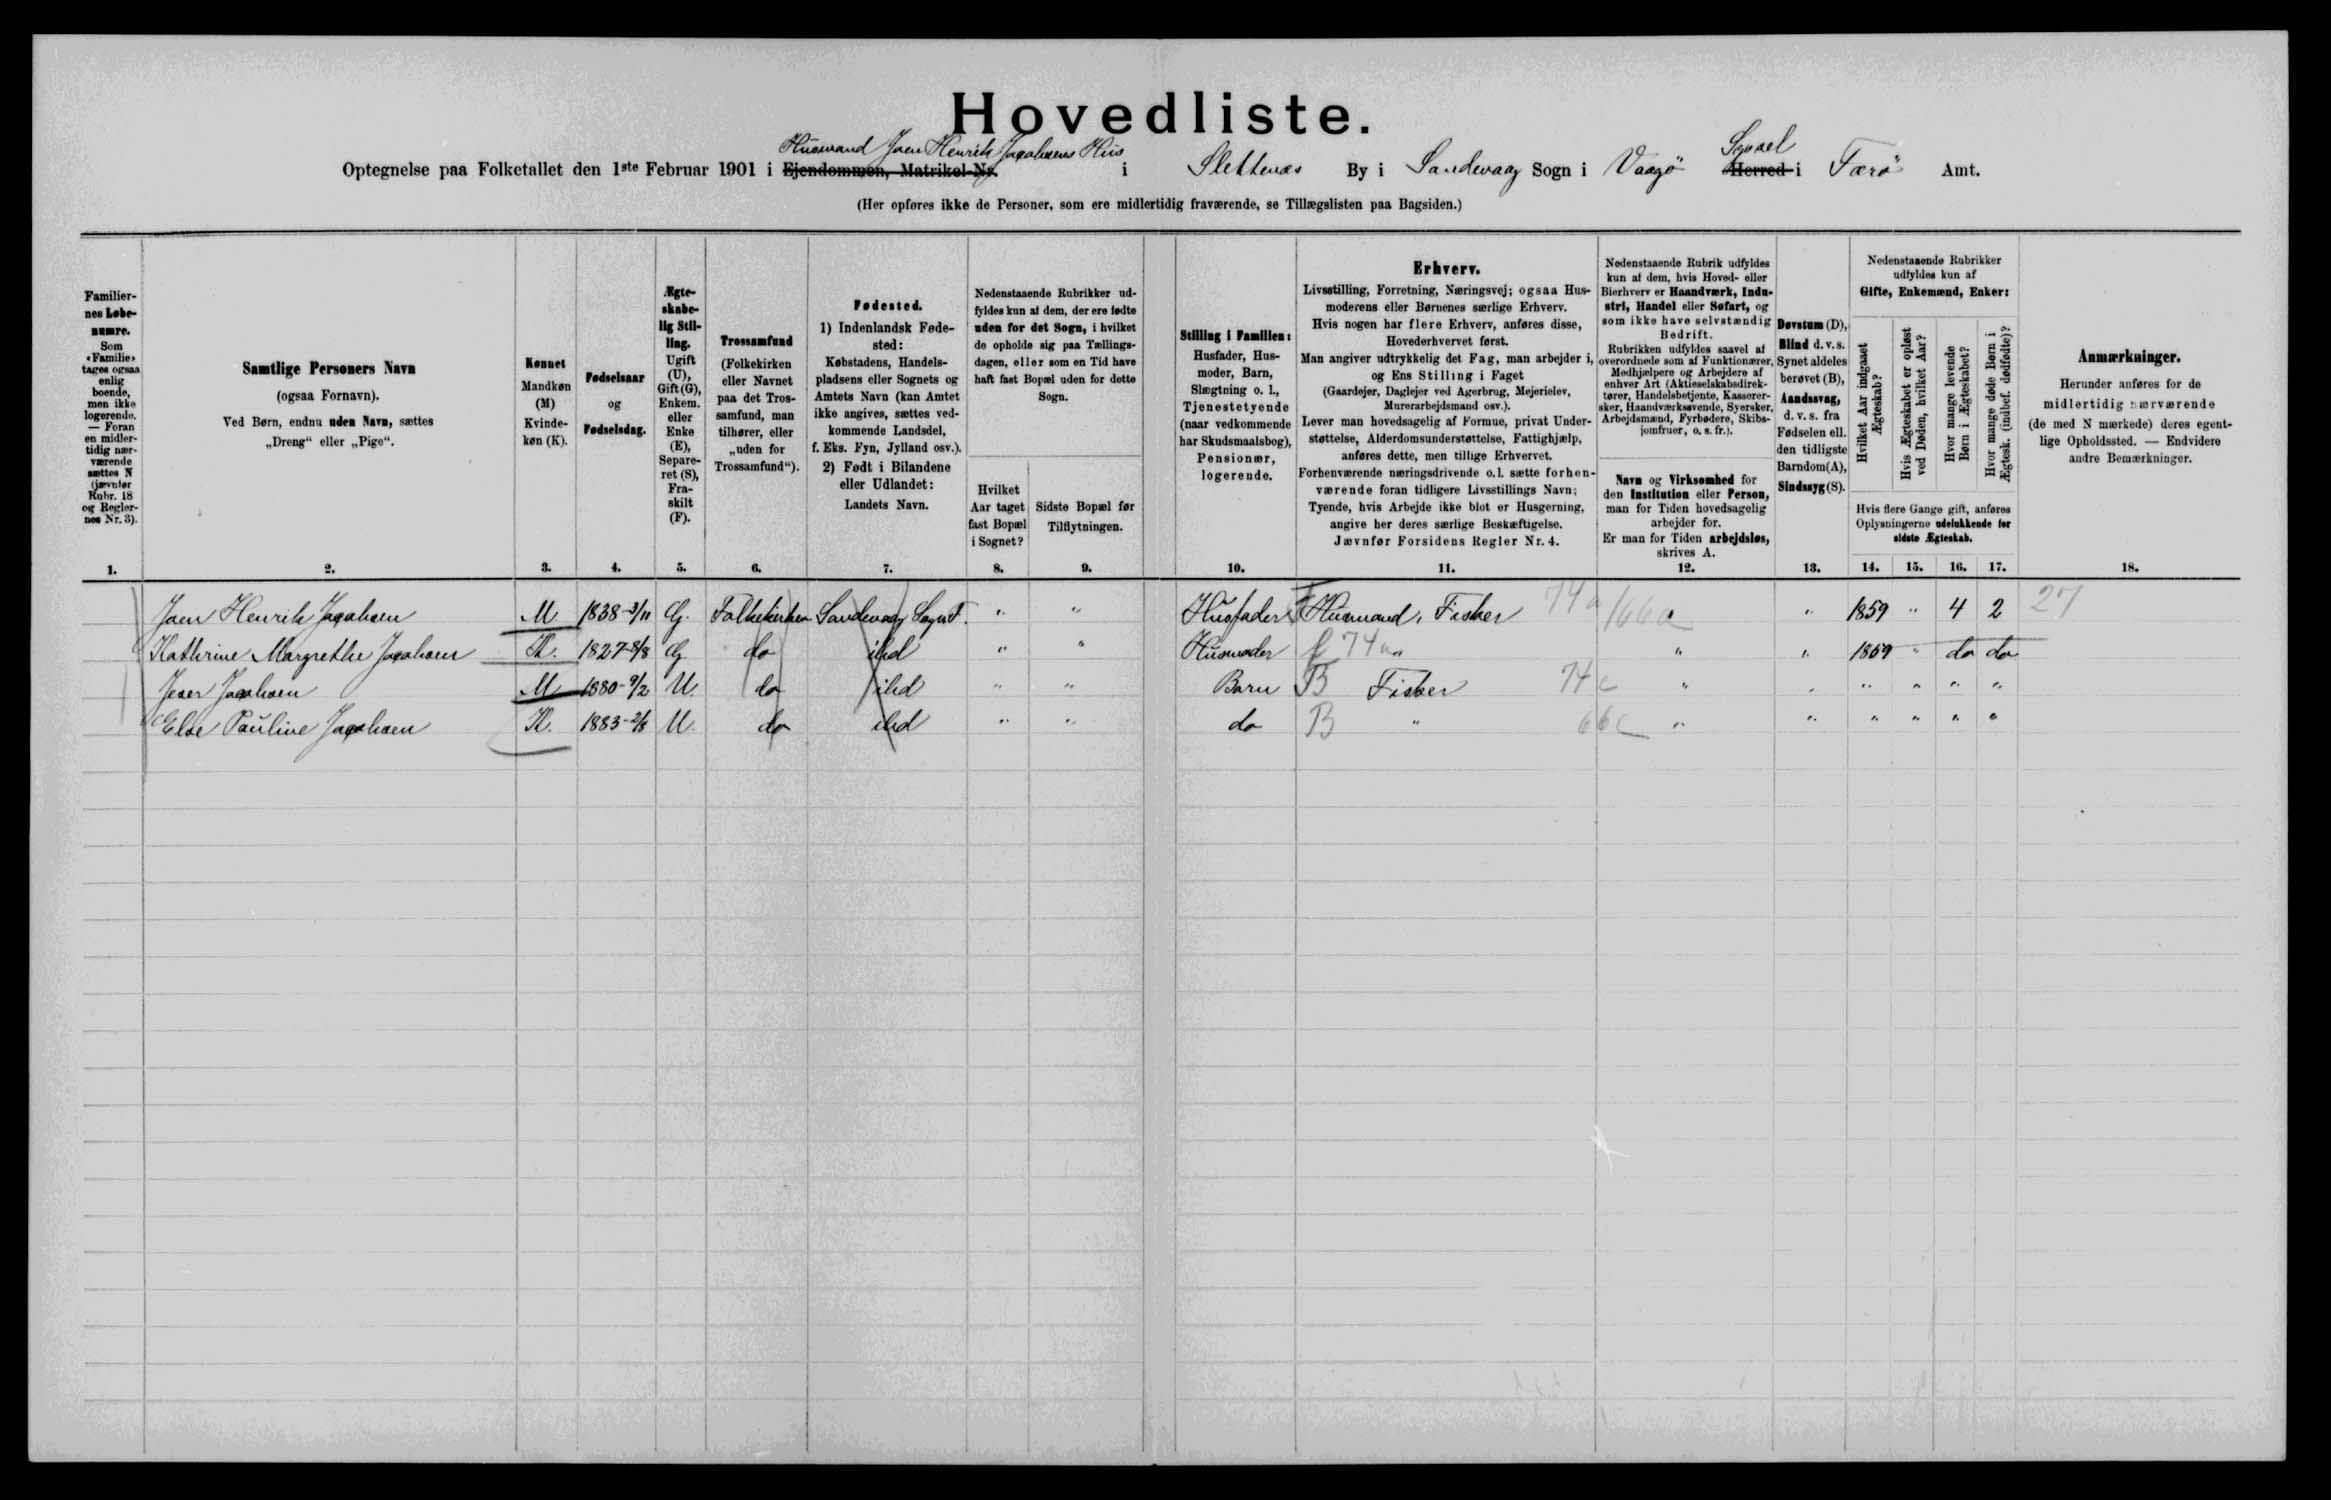 Hovedliste.
Husmand Joen Henrik Jacobsens Hus
Syssel
Optegnelse paa Folketallet den 1ste Februar 1901 i Ejendommen, Matrikel-Nr. i Slettenæs By i Sandevaag Sogn i Vaagø Herred i Færø Amt.
(Her opføres ikke de Personer, som ere midlertidig fraværende, se Tillægslisten paa Bagsiden.)
Familier-
nes Løbe-
numre.
Som
«Familie»
tages ogsaa
enlig
boende,
men ikke
logerende.
— Foran
en midler-
tidig nær-
værende
sættes N
(jævnfør
Rubr. 18
og Regler-
nes Nr. 3).
1.
Samtlige Personers Navn
(ogsaa Fornavn).
Ved Børn, endnu uden Navn, sættes
„Dreng“ eller „Pige“.
2.
Kønnet
Mandkøn
(M)
Kvinde-
køn (K).
3.
Fødselsaar
og
Fødselsdag.
4.
Ægte-
skabe-
lig Stil-
ling.
Ugift
(U),
Gift (G),
Enkem.
eller
Enke
(E),
Separe-
ret (S),
Fra-
skilt
(F).
5.
Trossamfund
(Folkekirken
eller Navnet
paa det Tros-
samfund, man
tilhører, eller
„uden for
Trossamfund“).
6.
Fødested.
1) Indenlandsk Føde-
sted:
Købstadens, Handels-
pladsens eller Sognets og
Amtets Navn (kan Amtet
ikke angives, sættes ved-
kommende Landsdel,
f. Eks. Fyn, Jylland osv.).
2) Født i Bilandene
eller Udlandet:
Landets Navn.
7.
Nedenstaaende Rubrikker ud-
fyldes kun af dem, der ere fødte
uden for det Sogn, i hvilket
de opholde sig paa Tællings-
dagen, eller som en Tid have
haft fast Bopæl uden for dette
Sogn.
Hvilket
Aar taget
fast Bopæl
i Sognet?
8.
Sidste Bopæl før
Tilflytningen.
9.
Stilling i Familien:
Husfader, Hus-
moder, Barn,
Slægtning o. l.,
Tjenestetyende
(naar vedkommende
har Skudsmaalsbog),
Pensionær,
logerende.
10.
Erhverv.
Livsstilling, Forretning, Næringsvej; ogsaa Hus-
moderens eller Børnenes særlige Erhverv.
Hvis nogen har flere Erhverv, anføres disse,
Hovederhvervet først.
Man angiver udtrykkelig det Fag, man arbejder i,
og Ens Stilling i Faget
(Gaardejer, Daglejer ved Agerbrug, Mejerielev,
Murerarbejdsmand osv.).
Lever man hovedsagelig af Formue, privat Under-
støttelse, Alderdomsunderstøttelse, Fattighjælp,
anføres dette, men tillige Erhvervet.
Forhenværende næringsdrivende o. l. sætte forhen-
værende foran tidligere Livsstillings Navn;
Tyende, hvis Arbejde ikke blot er Husgerning,
angive her deres særlige Beskæftigelse.
Jævnfør Forsidens Regler Nr. 4.
11.
Nedenstaaende Rubrik udfyldes
kun af dem, hvis Hoved- eller
Bierhverv er Haandværk, Indu-
stri, Handel eller Søfart, og
som ikke have selvstændig
Bedrift.
Rubrikken udfyldes saavel af
overordnede som af Funktionærer,
Medhjælpere og Arbejdere af
enhver Art (Aktieselskabsdirek-
tører, Handelsbetjente, Kasserer-
sker, Haandværkssvende, Syersker,
Arbejdsmænd, Fyrbødere, Skibs-
jomfruer, o. s. fr.).
Navn og Virksomhed for
den Institution eller Person,
man for Tiden hovedsagelig
arbejder for.
Er man for Tiden arbejdsløs,
skrives A.
12.
Døvstum (D),
Blind d. v. s.
Synet aldeles
berøvet (B),
Aandssvag,
d. v. s. fra
Fødselen ell.
den tidligste
Barndom (A),
Sindssyg (S).
13.
Nedenstaaende Rubrikker
udfyldes kun af
Gifte, Enkemænd, Enker:
Hvilket Aar indgaaet
Ægteskab?
Hvis Ægteskabet er opløst
ved Døden, hvilket Aar?
Hvor mange levende
Børn i Ægteskabet?
Hvor mange døde Børn i
Ægtesk. (indbef. dødfødte)?
Hvis flere Gange gift, anføres
Oplysningerne udelukkende for
sidste Ægteskab.
14. 15. 16. 17.
Anmærkninger.
Herunder anføres for de
midlertidig nærværende
(de med N mærkede) deres egent-
lige Opholdssted. — Endvidere
andre Bemærkninger.
18.
Joen Henrik Jacobsen M. 1838-3/11 G. Folkekirken Sandevaag Sogn F. " " Husfader Husmand, Fisker 74a 166a " 1859 " 4 2 27
Kathrine Margrethe Jacobsen K. 1827-8/8 G do ibd " " Husmoder f 74a " " " 1859 " do do
Jeser Jacobsen M 1880-9/2 U. do ibd " " Barn B Fisker 74c " " " " " "
Else Pauline Jacobsen K. 1883-2/8 U. do ibd " " do B " 66c " " " " " "